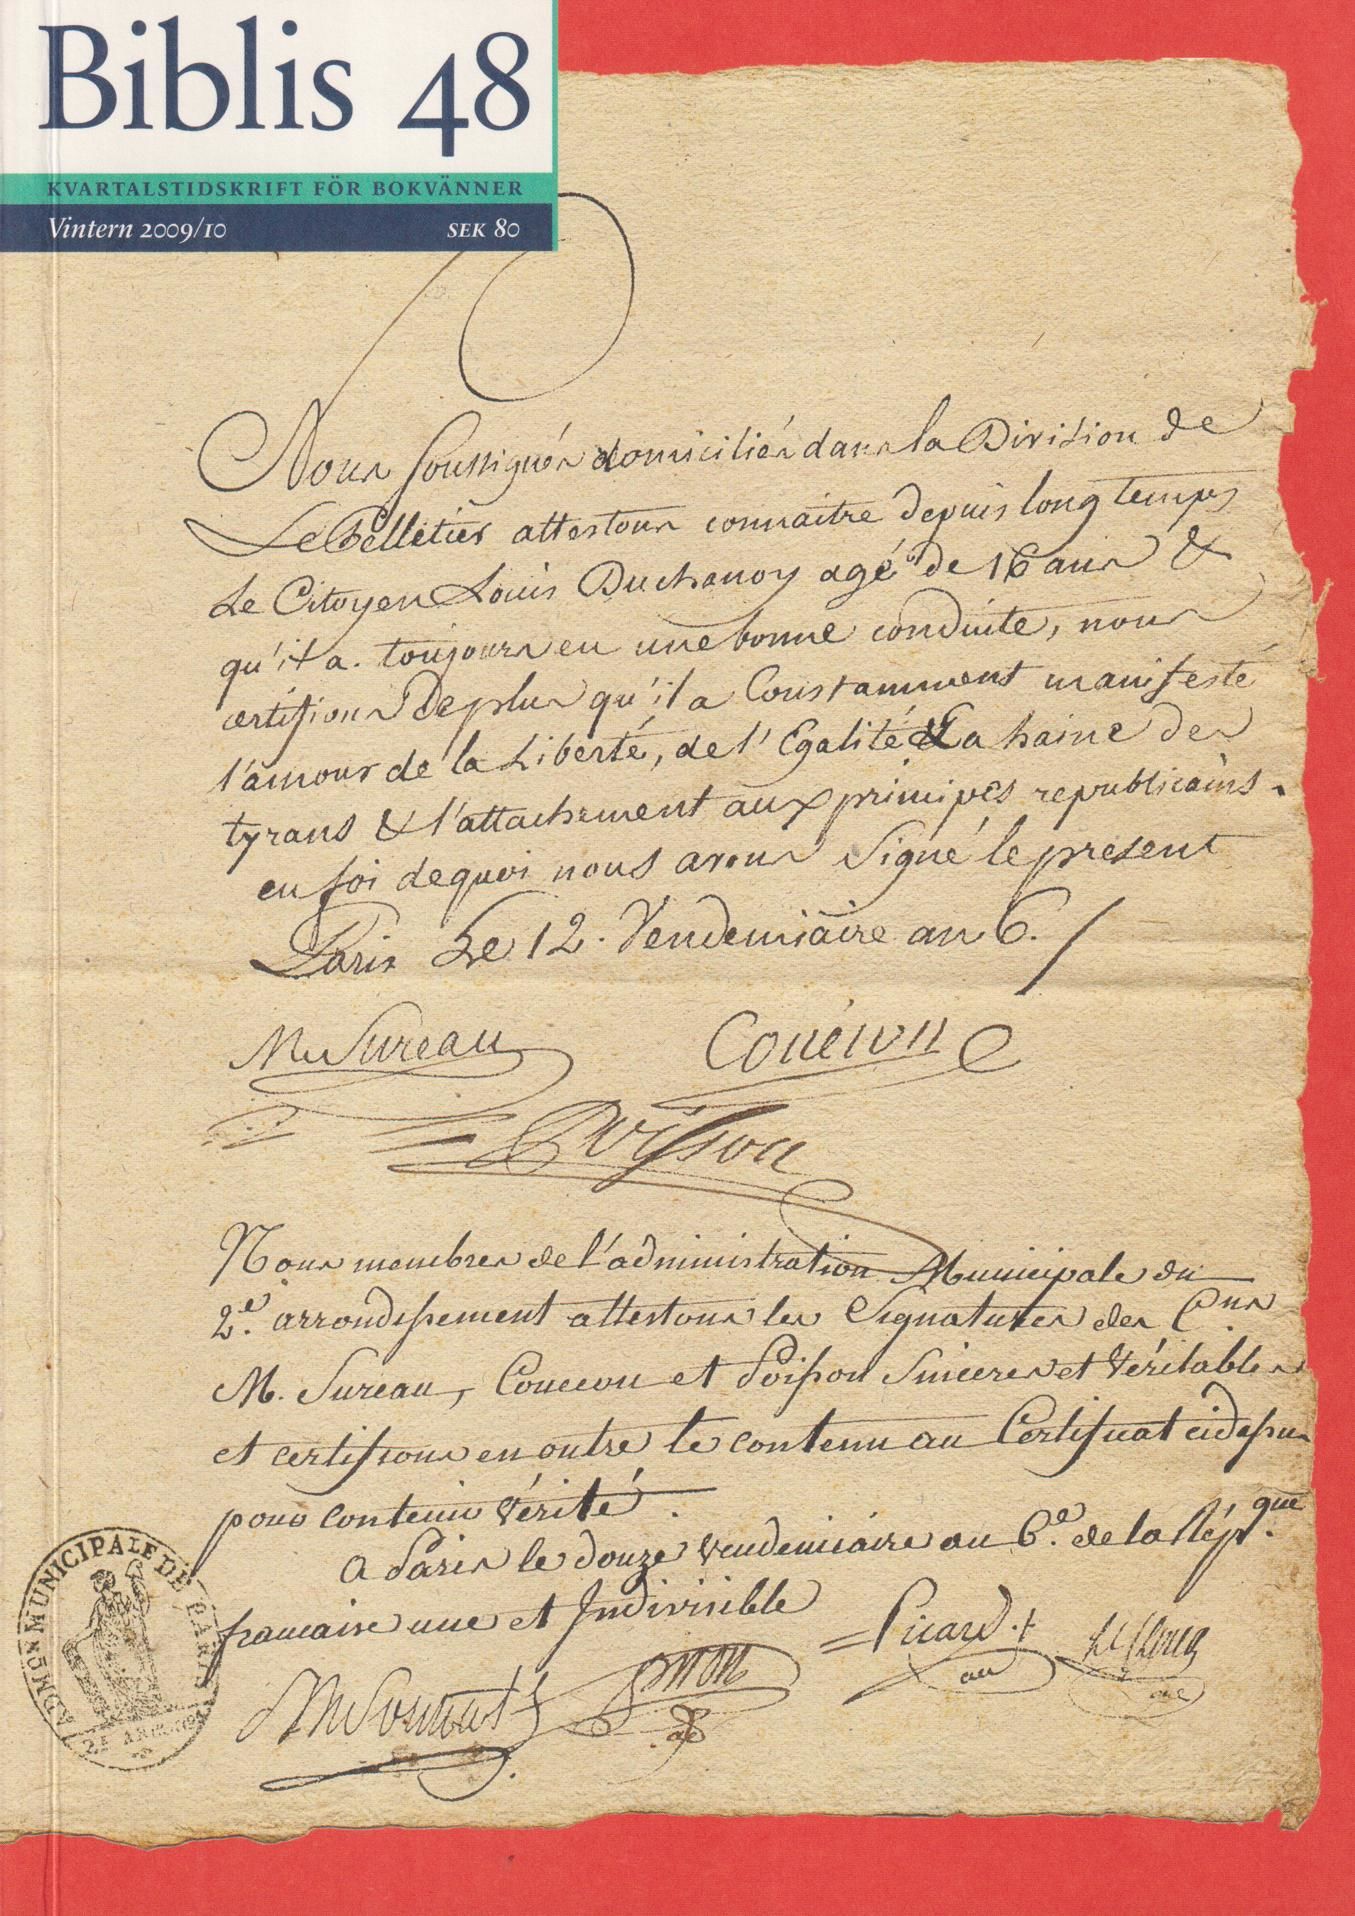 Biblis 48
KVARTALSTIDSKRIFT FÖR BOKVÄNNER
Vintern 2009/10 SEK 80
Nous soussignés domiciliés dans la Division de
Le Pelletier attestons connaitre depuis long temps
Le Citoyen Louis Duchanoy agé de 16 ans &
qu'il a toujours eu une bonne conduite, nous
certifions De plus qu'il a Constamment manifesté
l'amour de la Liberté, de l'Egalité & La haine des
tyrans & l'attachement aux principes republicains.
en foi de quoi nous avons Signé le present
Paris Le 12. Vendemiaire an 6.
M Sureau
Poisson
Nous membres de l'administration Municipale du
2e. arrondissement attestons les Signatures des Cens
M. Sureau, et Poisson Sinceres et Véritables
et certifions en outre le contenu au Certificat cidessus
pour contenir Vérité.
A Paris le douze Vendemiaire an 6e. de la Répque.
francaise une et Indivisible
Picard
ADMON MUNICIPALE DE PARIS